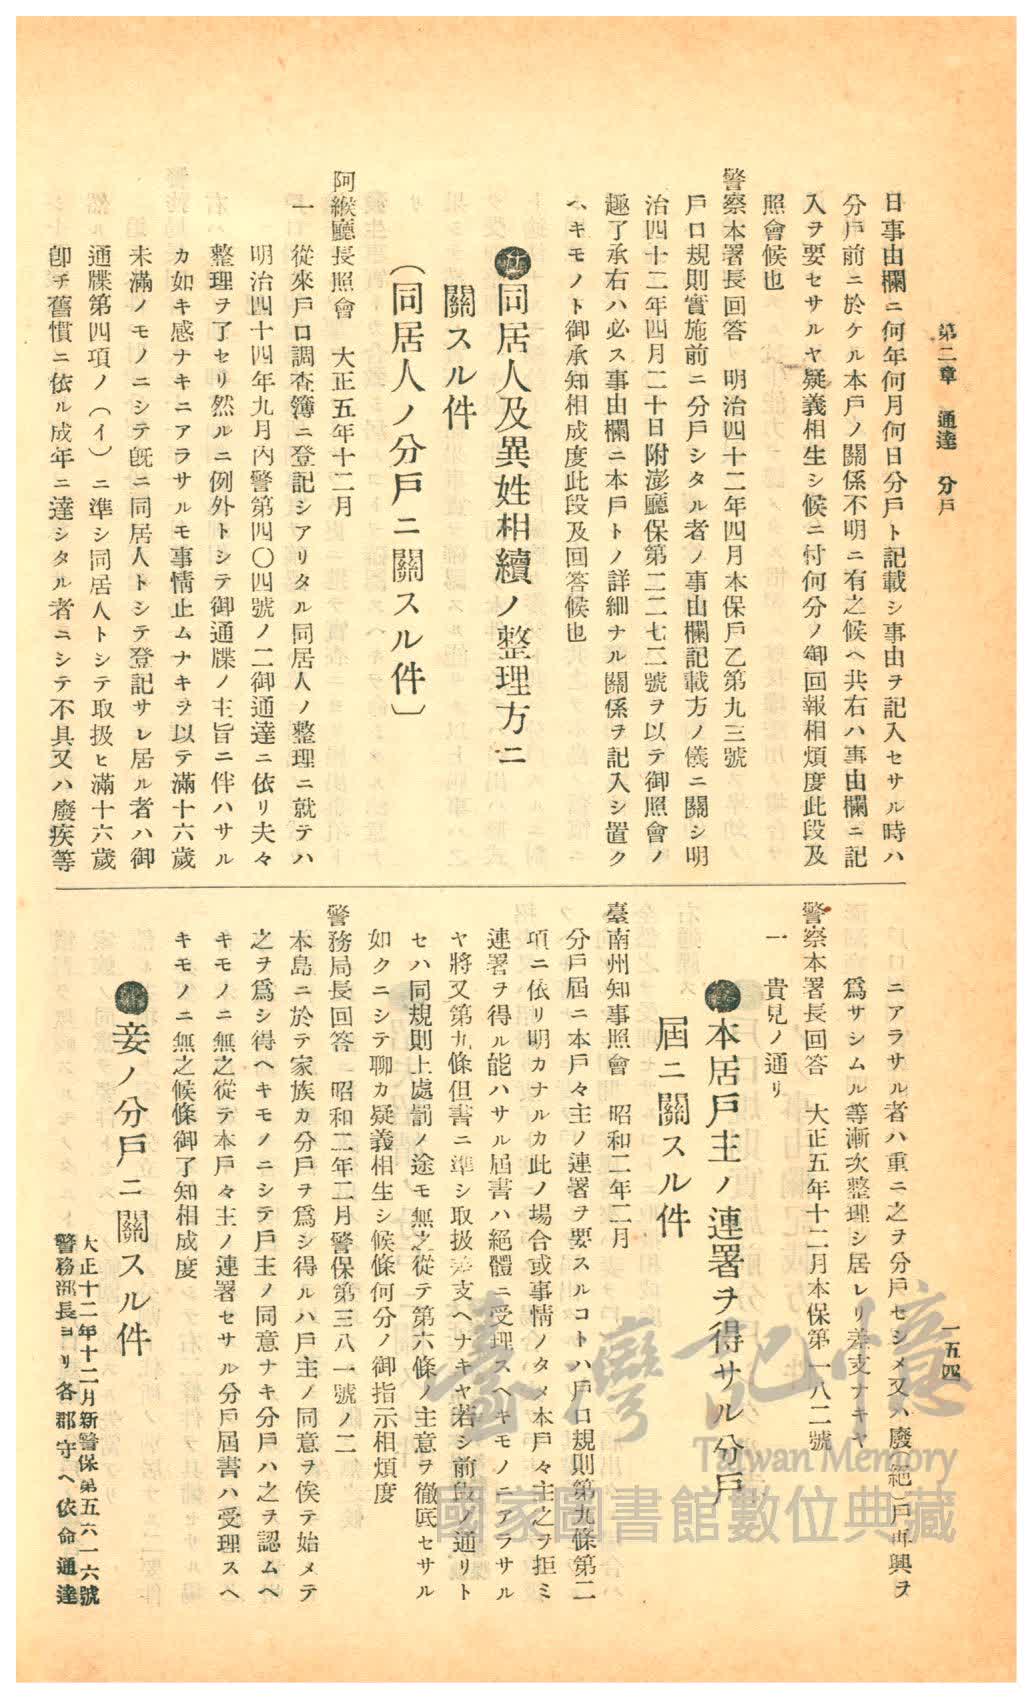 第二章　通達　分戶
一五四
日事由欄ニ何年何月何日分戶ト記載シ事由ヲ記入セサル時ハ
分戶前ニ於ケル本戶ノ關係不明ニ有之候ヘ共右ハ事由欄ニ記
入ヲ要セサルヤ疑義相生シ候ニ付何分ノ御回報相煩度此段及
照會候也
警察本署長回答　明治四十二年四月本保戶乙第九三號
戶口規則實施前ニ分戶シタル者ノ事由欄記載方ノ儀ニ關シ明
治四十二年四月二十日附澎廳保第二二七二號ヲ以テ御照會ノ
趣了承右ハ必ス事由欄ニ本戶トノ詳細ナル關係ヲ記入シ置ク
ヘキモノト御承知相成度此段及回答候也
同居人及異姓相續ノ整理方ニ
關スル件
（同居人ノ分戶ニ關スル件）
阿緱廳長照會　大正五年十二月
一　從來戶口調查簿ニ登記シアリタル同居人ノ整理ニ就テハ
明治四十四年九月內警第四〇四號ノ二御通達ニ依リ夫々
整理ヲ了セリ然ルニ例外トシテ御通牒ノ主旨ニ伴ハサル
カ如キ感ナキニアラサルモ事情止ムナキヲ以テ滿十六歲
未滿ノモノニシテ旣ニ同居人トシテ登記サレ居ル者ハ御
通牒第四項ノ（イ）ニ準シ同居人トシテ取扱ヒ滿十六歲
卽チ舊慣ニ依ル成年ニ達シタル者ニシテ不具又ハ廢疾等
ニアラサル者ハ重ニ之ヲ分戶セシメ又ハ廢（絕）戶再興ヲ
爲サシムル等漸次整理シ居レリ差支ナキヤ
警察本署長回答　大正五年十二月本保第一八二號
一　貴見ノ通リ
本居戶主ノ連署ヲ得サル分戶
屆ニ關スル件
臺南州知事照會　昭和二年二月
分戶屆ニ本戶々主ノ連署ヲ要スルコトハ戶口規則第九條第二
項ニ依リ明カナルカ此ノ場合或事情ノタメ本戶々主之ヲ拒ミ
連署ヲ得ル能ハサル屆書ハ絕體ニ受理スヘキモノニアラサル
ヤ將又第九條但書ニ準シ取扱差支ヘナキヤ若シ前段ノ通リト
セハ同規則上處罰ノ途モ無之從テ第六條ノ主意ヲ徹底セサル
如クニシテ聊カ疑義相生シ候條何分ノ御指示相煩度
警務局長回答　昭和二年二月警保第三八一號ノ二
本島ニ於テ家族カ分戶ヲ爲シ得ルハ戶主ノ同意ヲ俟テ始メテ
之ヲ爲シ得ヘキモノニシテ戶主ノ同意ナキ分戶ハ之ヲ認ムヘ
キモノニ無之從テ本戶々主ノ連署セサル分戶屆書ハ受理スヘ
キモノニ無之候條御了知相成度
妾ノ分戶ニ關スル件
大正十二年十二月新警保第五六一六號
警務部長ヨリ各郡守ヘ依命通達
臺灣記憶
Taiwan Memory
國家圖書館數位典藏